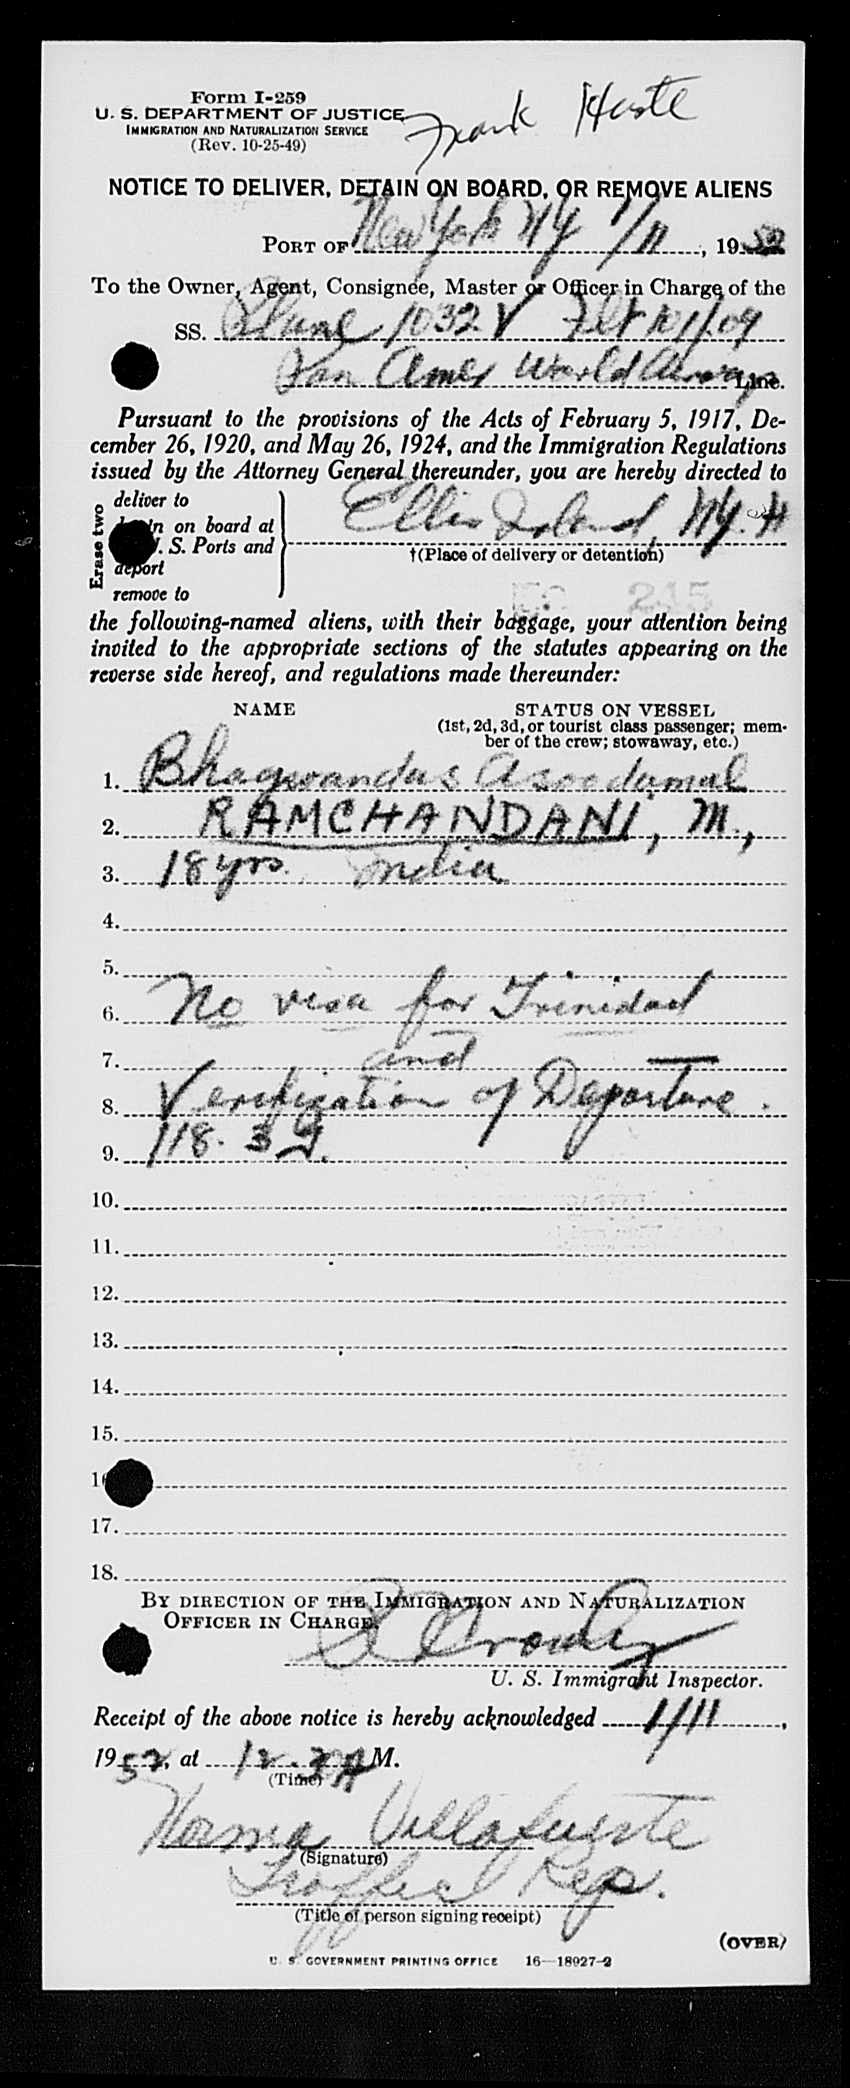 Form I-259
U. S. DEPARTMENT OF JUSTICE
IMMIGRATION AND NATURALIZATION SERVICE
(Rev. 10-25-49)
Frank
NOTICE TO DELIVER, DETAIN ON BOARD, OR REMOVE ALIENS
PORT OF New York NY 1/11, 1952
To the Owner, Agent, Consignee, Master or Officer in Charge of the
SS. Plane 1032 V Flt 101/09
Pan Amer World Airways Line.
Pursuant to the provisions of the Acts of February 5, 1917, De-
cember 26, 1920, and May 26, 1924, and the Immigration Regulations
issued by the Attorney General thereunder, you are hereby directed to
Erase two
deliver to
on board at
S. Ports and
deport
remove to
Ellis Island, NY.
†(Place of delivery or detention)
245
the following-named aliens, with their baggage, your attention being
invited to the appropriate sections of the statutes appearing on the
reverse side hereof, and regulations made thereunder:
NAME STATUS ON VESSEL
(1st, 2d, 3d, or tourist class passenger; mem-
ber of the crew; stowaway, etc.)
1. Bhagwandas Asoodamal
2. RAMCHANDANI, M.,
3. 18 yrs. India
4.
5.
6. No visa for Trinidad
7. and
8. Verification of Departure.
9. 118.
10.
11.
12.
13.
14.
15.
17.
18.
BY DIRECTION OF THE IMMIGRATION AND NATURALIZATION
OFFICER IN CHARGE
Crowley
U. S. Immigrant Inspector.
Receipt of the above notice is hereby acknowledged 1/11,
1952, at 12.30 A M.
(Time)
Norma Villafuerte
(Signature)
Traffic Rep.
(Title of person signing receipt)
(OVER)
U. S. GOVERNMENT PRINTING OFFICE 16—18927-2